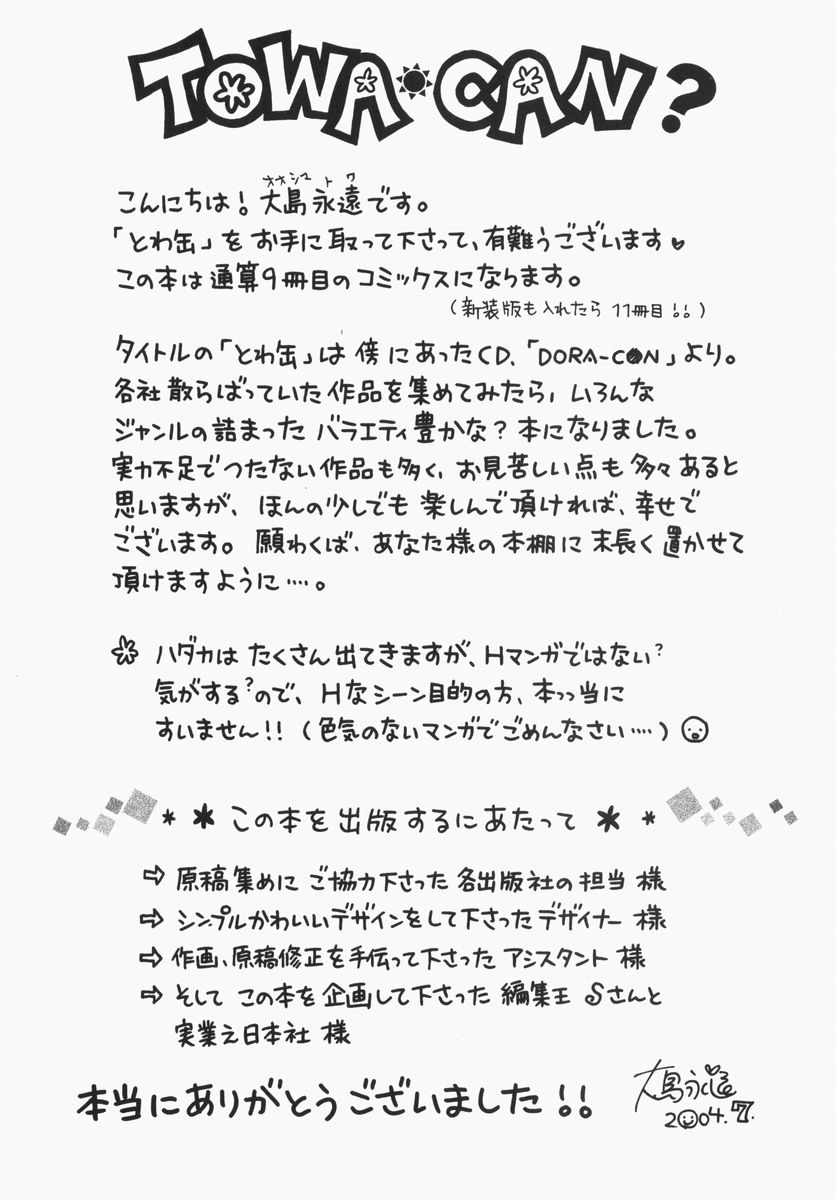 TOWA☀CAN?
オオシマ トワ
こんにちは! 大島永遠です。
「とわ缶」を お手に取って下さって、有難うございます♥
この本は通算9冊目のコミックスになります。
(新装版も入れたら 11冊目!!)
タイトルの「とわ缶」は 傍にあったCD、「DORA-CON」より。
各社散らばっていた作品を集めてみたら、いろんな
ジャンルの詰まった バラエティ豊かな?本になりました。
実力不足でつたない作品も多く、お見苦しい点も多々あると
思いますが、ほんの少しでも 楽しんで頂ければ、幸せで
ございます。願わくば、あなた様の本棚に 末長く置かせて
頂けますように…。
ハダカは たくさん出てきますが、Hマンガではない?
気がする?ので、Hなシーン目的の方、本っ当に
すいません!!(色気のないマンガでごめんなさい…)
* * この本を出版するにあたって * *
⇨ 原稿集めに ご協力下さった 各出版社の担当様
⇨ シンプルかわいいデザインをして下さったデザイナー様
⇨ 作画、原稿修正を手伝って下さった アシスタント様
⇨ そして この本を企画して下さった 編集王 Sさんと
実業之日本社 様
本当にありがとうございました!!
大島永遠
2004.7.